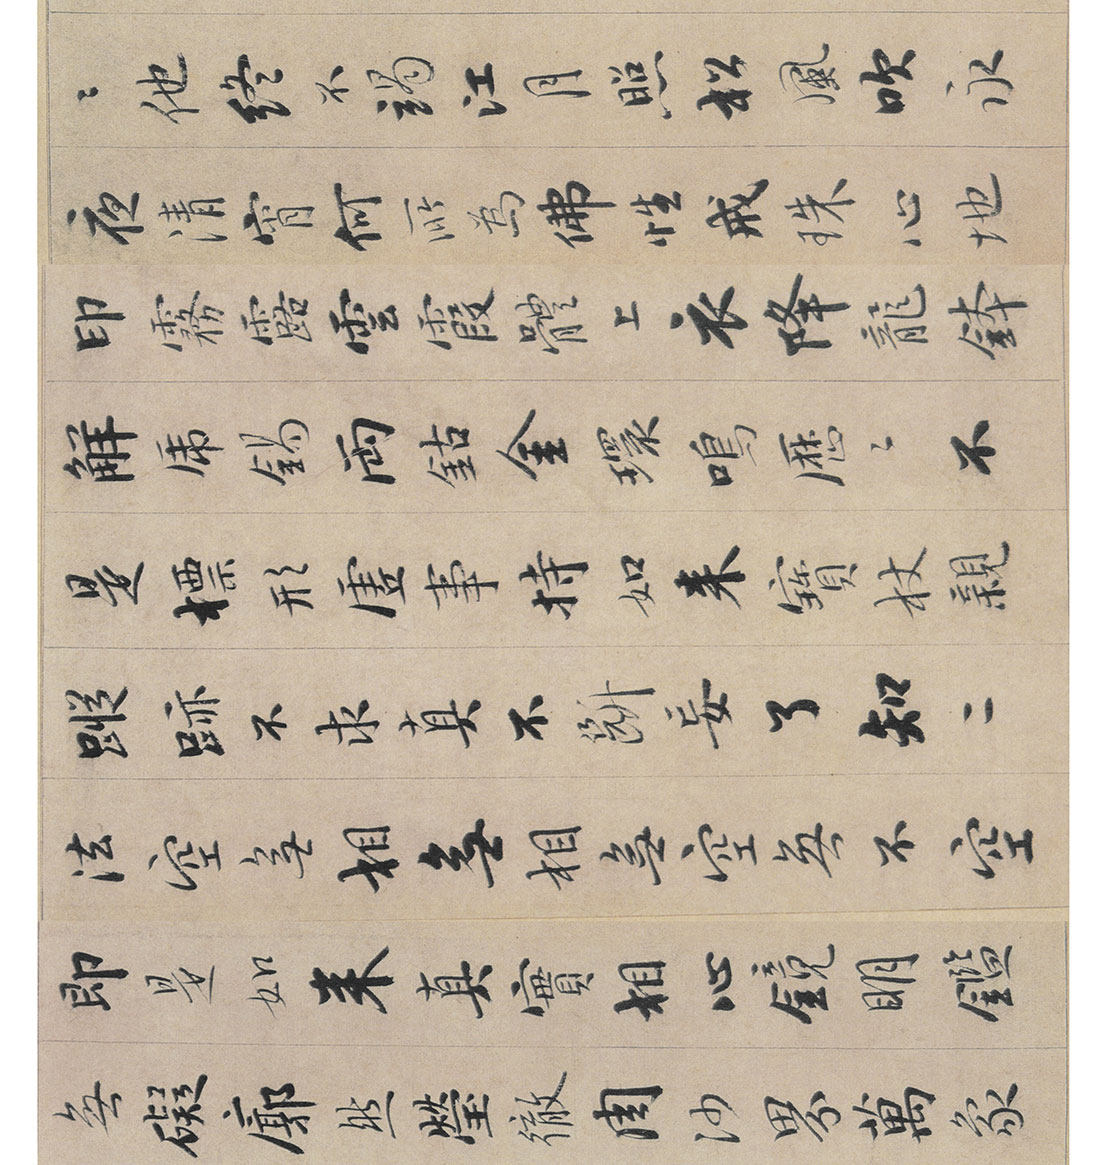 〻他終不竭江月照松風吹永
夜清宵何所為佛性戒珠心地
印霧露雲霞體上衣降龍鉢
解虎錫兩鈷金環鳴歷〻不
是標形虛事持如来寶杖親
蹤跡不求真不斷妄了知二
法空無相無相無空無不空
即是如来真實相心鏡明鑑
無礙廓然瑩徹周沙界萬象